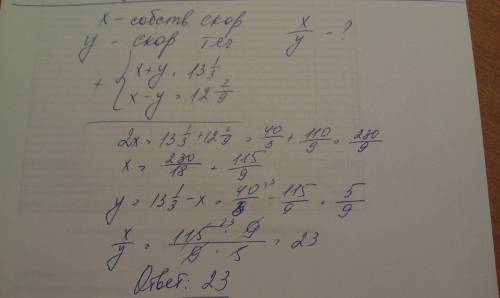 x - собств. скор x/y - ?
y - скор теч
+ { x+y = 13 1/3
x-y = 12 2/9
2x = 13 1/3 + 12 2/9 = 40/3 + 110/9 = 230/9
x = 230/18 = 115/9
y = 13 1/3 - x = 40/3 - 115/9 = 5/9
x/y = 115 · 9 / 9 · 5 = 23
Ответ: 23